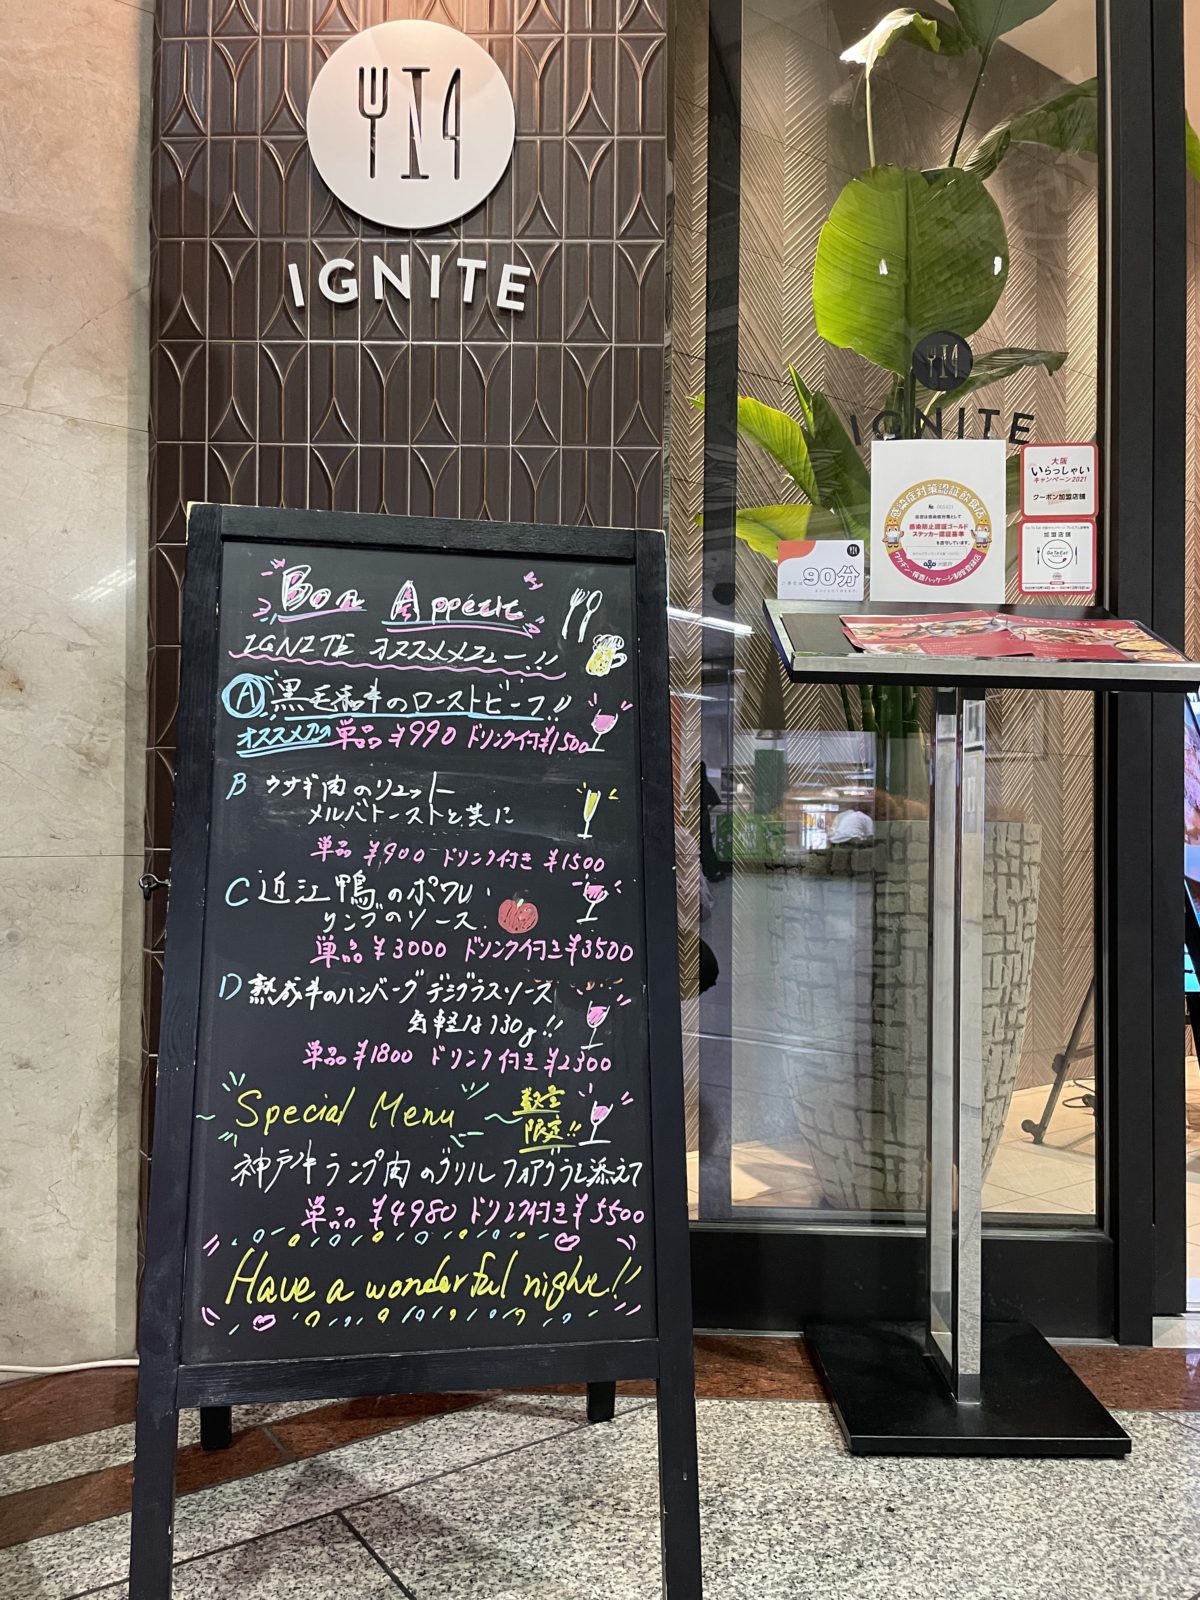 IGNITE
Bon Appetit
IGNITE オススメメニュー!!
A 黒毛和牛のローストビーフ!!
オススメ 単品 ¥990 ドリンク付¥1500
B ウサギ肉のリエット
メルバトーストと共に
単品 ¥900 ドリンク付き ¥1500
C 近江鴨のポワレ
リンゴのソース
単品 ¥3000 ドリンク付き¥3500
D 熟成牛のハンバーグ デミグラスソース
気軽な130g!!
単品 ¥1800 ドリンク付き ¥2300
Special Menu 数量
限定!!
神戸牛ランプ肉のグリル フォアグラを添えて
単品 ¥4980 ドリンク付き¥5500
Have a wonderful night!!
IGNITE
90分
感染症対策認証飲食店
感染防止認証ゴールド
ステッカー認証基準
大阪府
大阪
いらっしゃい
キャンペーン2021
クーポン加盟店舗
加盟店舗
Go To Eat